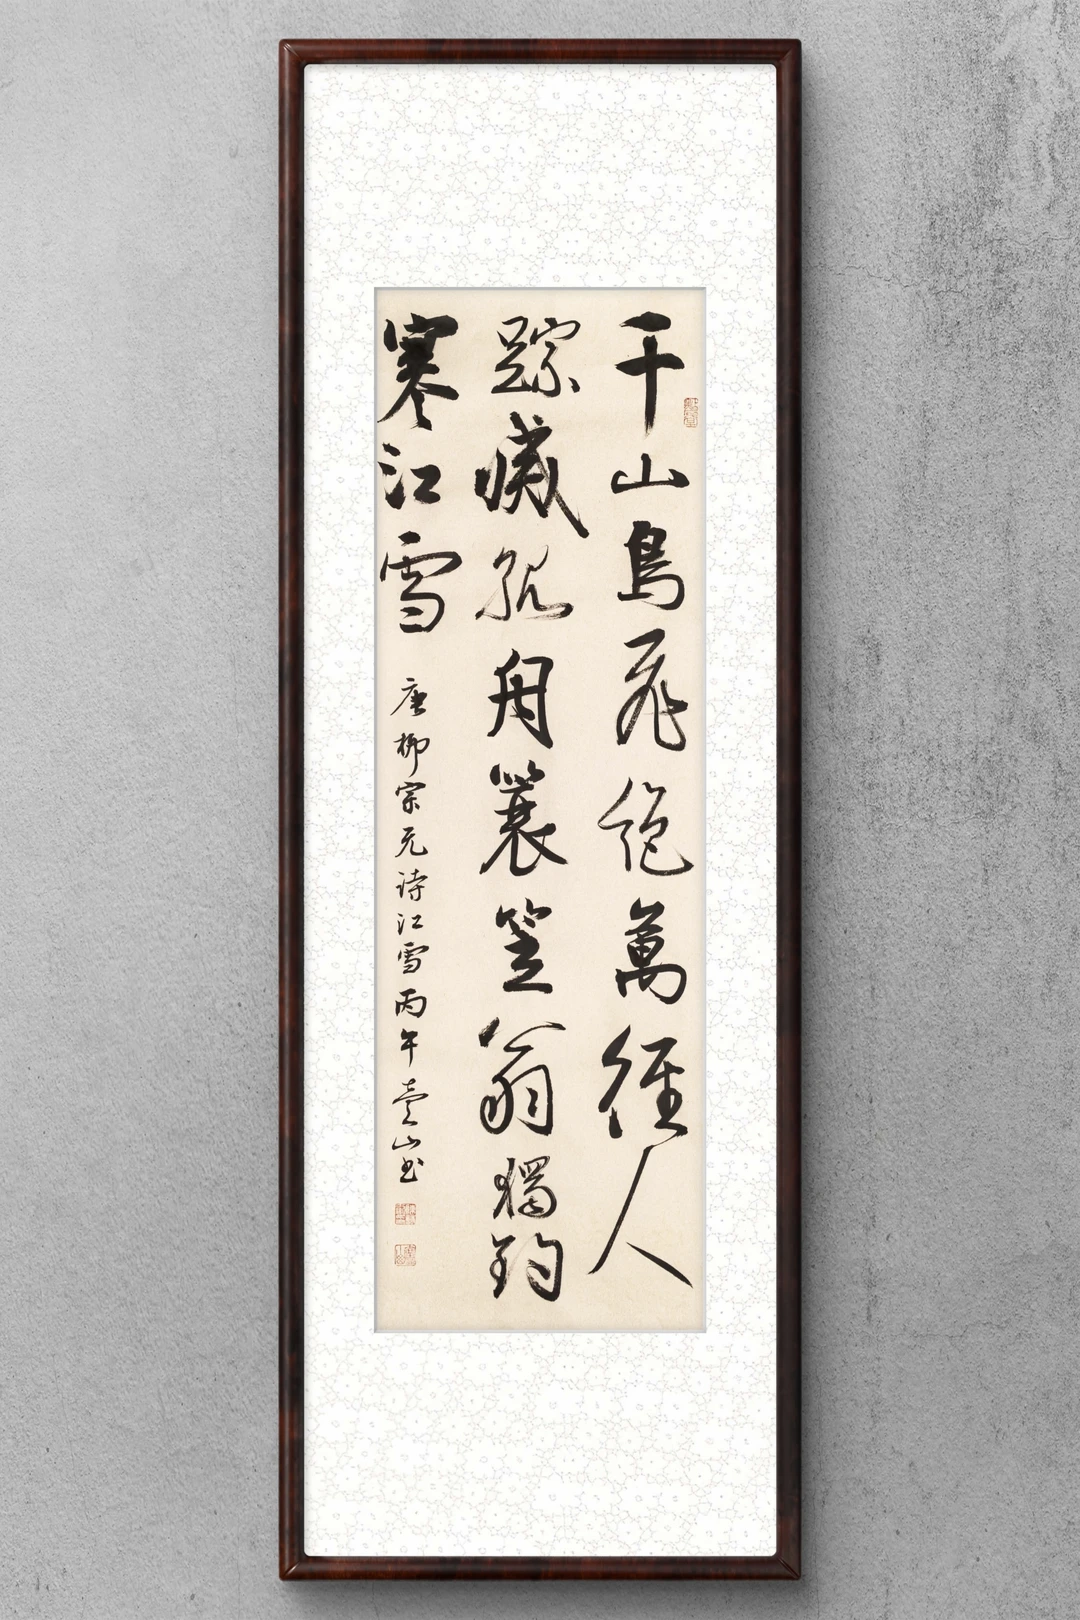 千山鳥飛絶萬徑人
踪滅孤舟蓑笠翁獨釣
寒江雪
唐柳宗元诗江雪丙午壹山书